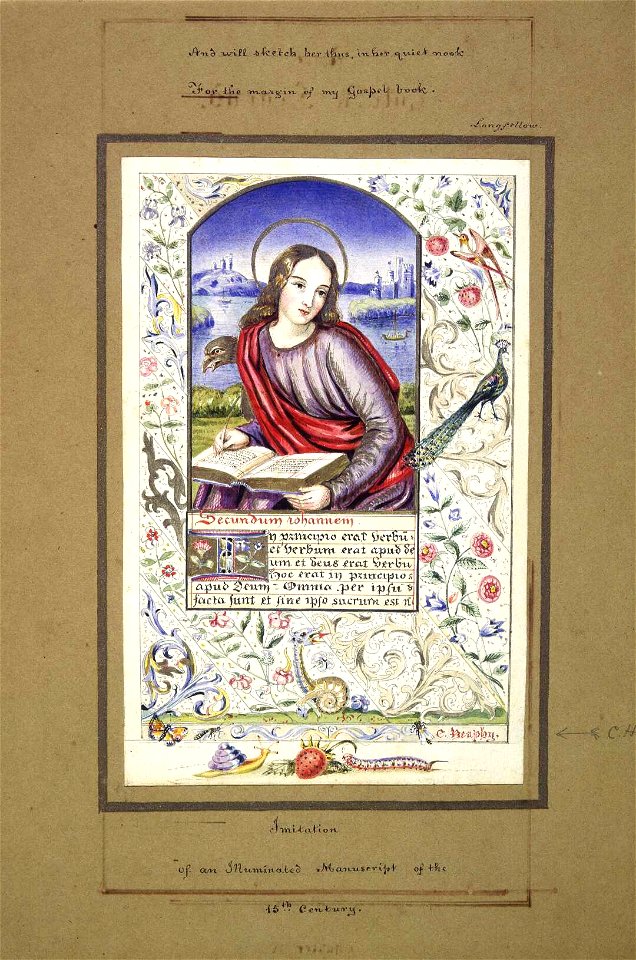 And will sketch her thus, in her quiet nook
For the margin of my Gospel book.
Longfellow.
Secundum iohannem.
In principio erat verbū.
et verbum erat apud de
um et deus erat verbū
Hoc erat in principio
apud Deum. Omnia per ipsū
facta sunt et sine ipso sacrum est n
C. Heaphy.
C.H
Imitation
of an Illuminated Manuscript of the
15th Century.